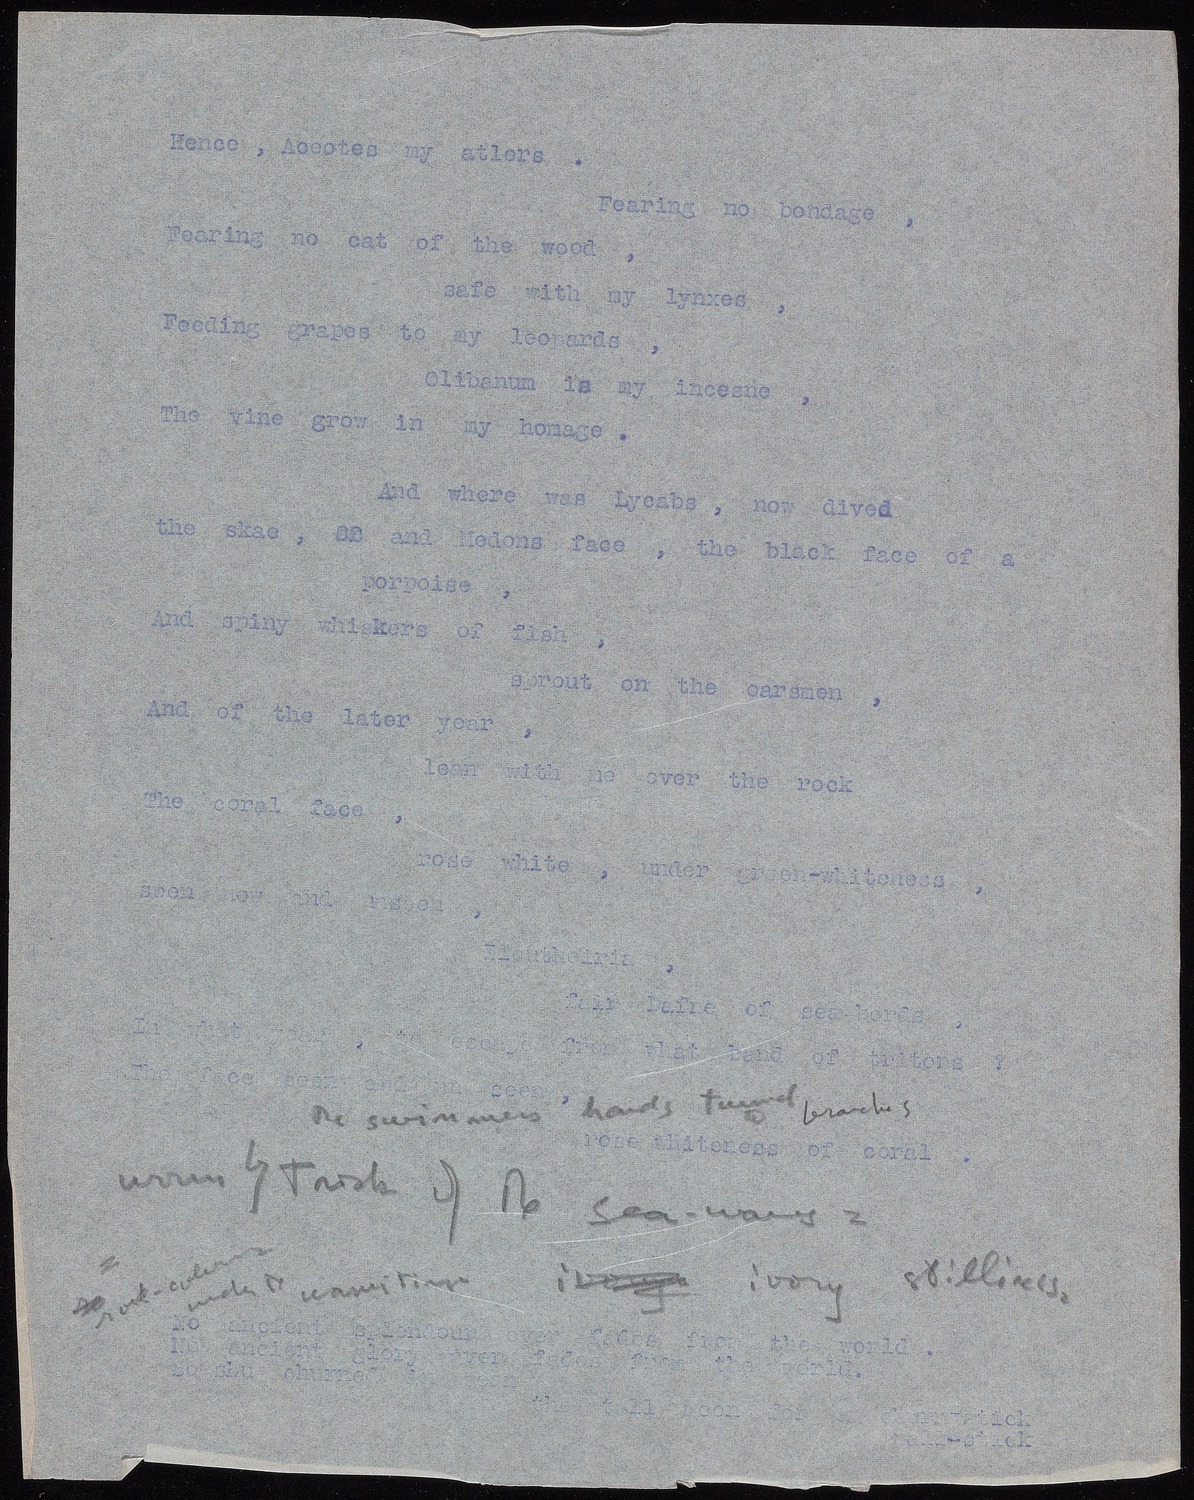 Hence , Acootes my atlers .
Fearing no bondage ,
Fearing no cat of the wood ,
safe with my lynxes ,
Feeding grapes to my leopards ,
Olibanum is my incesne ,
The vine grow in my homage .
And where was Lycabs , now dived
the skae , and Medons face , the black face of a
porpoise ,
And spiny whiskers of fish ,
sprout on the oarsmen ,
And of the later year ,
lean with me over the rock
The coral face ,
rose white , under green-whiteness ,
seen now and unseen ,
Eleutheiria ,
fair Dafne of sea-bords ,
In what year , to escape from what band of tritons ?
The face seen and un seen ,
The swimmers hands turned to branches
rose whiteness of coral .
of the sea-waves =
ivory stillness.
rock-colour
under the
No ancient splendour ever fades from the world .
No ancient glory ever fades from the world.
So Shu churned
the moon for a churn-stick
-stick